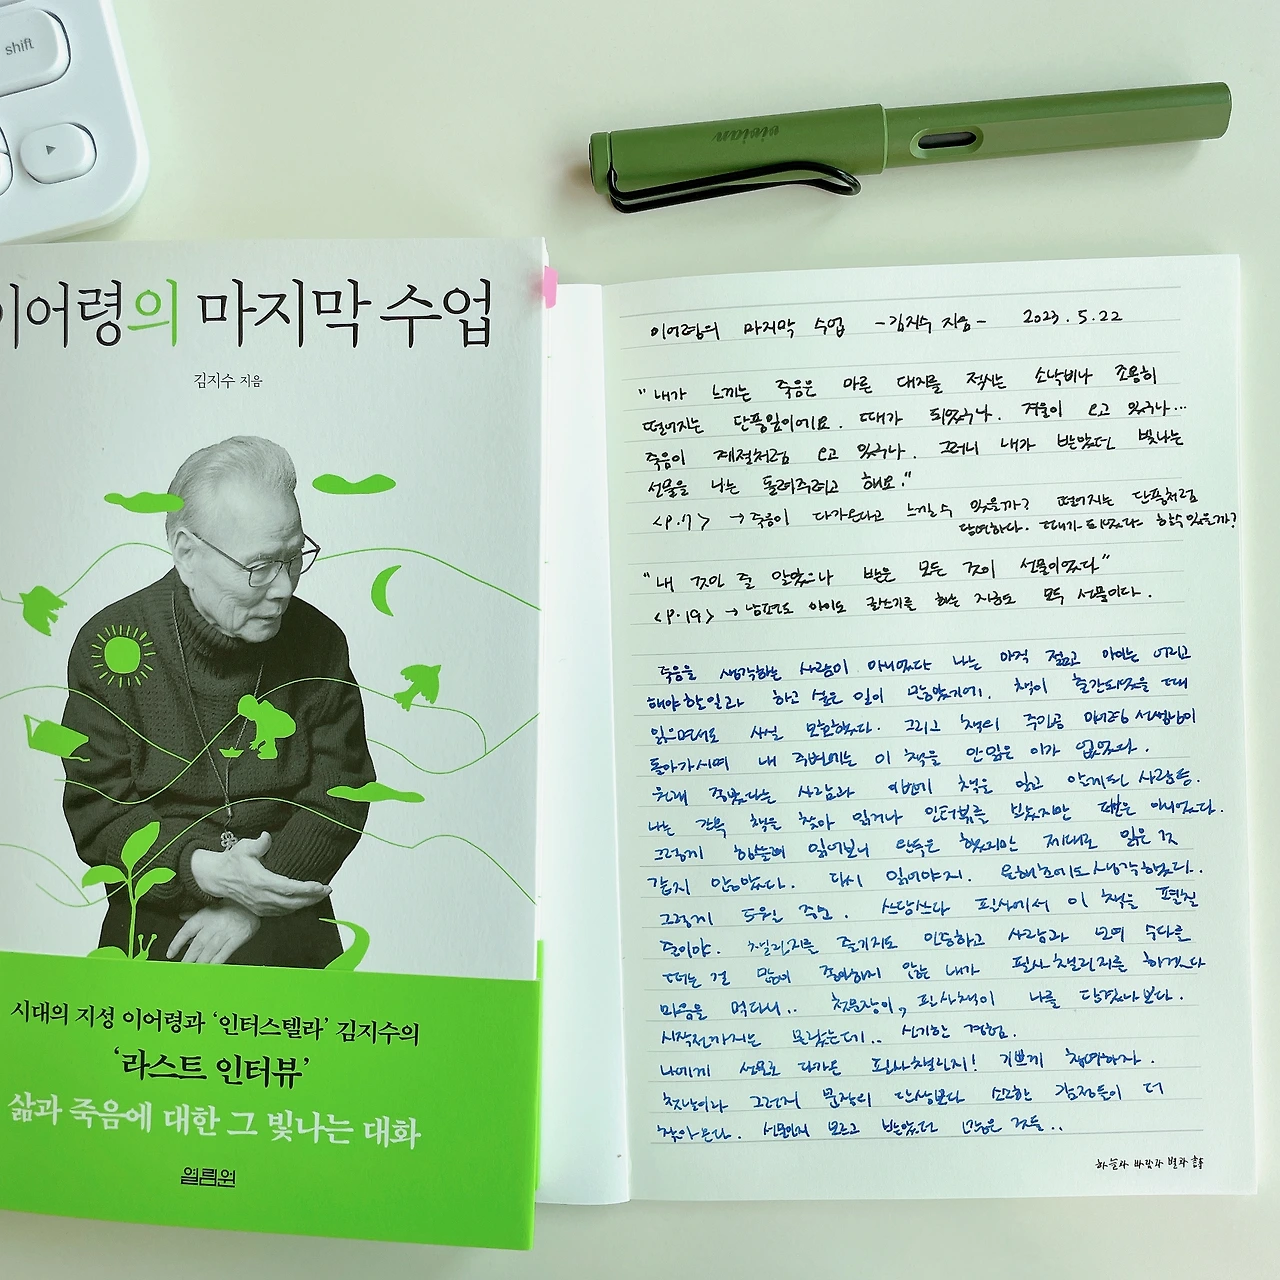 shift
vivian
이어령의 마지막 수업
김지수 지음
시대의 지성 이어령과 ‘인터스텔라’ 김지수의
‘라스트 인터뷰’
삶과 죽음에 대한 그 빛나는 대화
열림원
이어령의 마지막 수업 -김지수 지음- 2023.5.22
"내가 느끼는 죽음은 마른 대지를 적시는 소낙비나 조용히
떨어지는 단풍잎이에요. 때가 되었구나. 겨울이 오고 있구나...
죽음이 계절처럼 오고 있구나. 그러니 내가 받았던 빛나는
선물을 나는 돌려주려고 해요."
<P.7> → 죽음이 다가온다고 느낄 수 있을까? 떨어지는 단풍처럼
당연하다. 때가 되었다 할 수 있을까?
"내 것인 줄 알았으나 받은 모든 것이 선물이었다"
<P.19> → 남편도 아이도 글쓰기를 하는 지금도 모두 선물이다.
죽음을 생각하는 사람이 아니었다 나는 아직 젊고 아이는 어리고
해야 할 일과 하고 싶은 일이 많았기에. 책이 출간되었을 때
읽으면서도 사실 모호했다. 그리고 책의 주인공 이어령 선생님이
돌아가시며 내 주변에는 이 책을 안 읽은 이가 없었다.
원래 좋았다는 사람과 이번에 책을 읽고 알게 된 사람들.
나는 간혹 책을 찾아 읽거나 인터뷰를 보았지만 팬은 아니었다.
그렇게 읽어보니 완독은 했지만 제대로 읽은 것
같지 않았다. 다시 읽어야지. 올해 초에도 생각했다.
그렇게 도우인 주문. 쓰담쓰다 필사에서 이 책을 펼칠
줄이야. 챌린지를 즐기지도 인증하고 사람과 모여 수다를
떠는 걸 많이 좋아하지 않는 내가 필사 챌린지를 하겠다
마음을 먹다니.. 첫문장이, 필사책이 나를 당겼나보다.
시작전까지는 몰랐는데.. 신기한 경험.
나에게 선물로 다가온 필사챌린지! 기쁘게 참여하자.
첫날이라 그런지 문장의 단상보다 소소한 감정들이 더
찾아온다. 선물인지 모르고 받았던 많은 것들..
하늘과 바람과 별과 詩